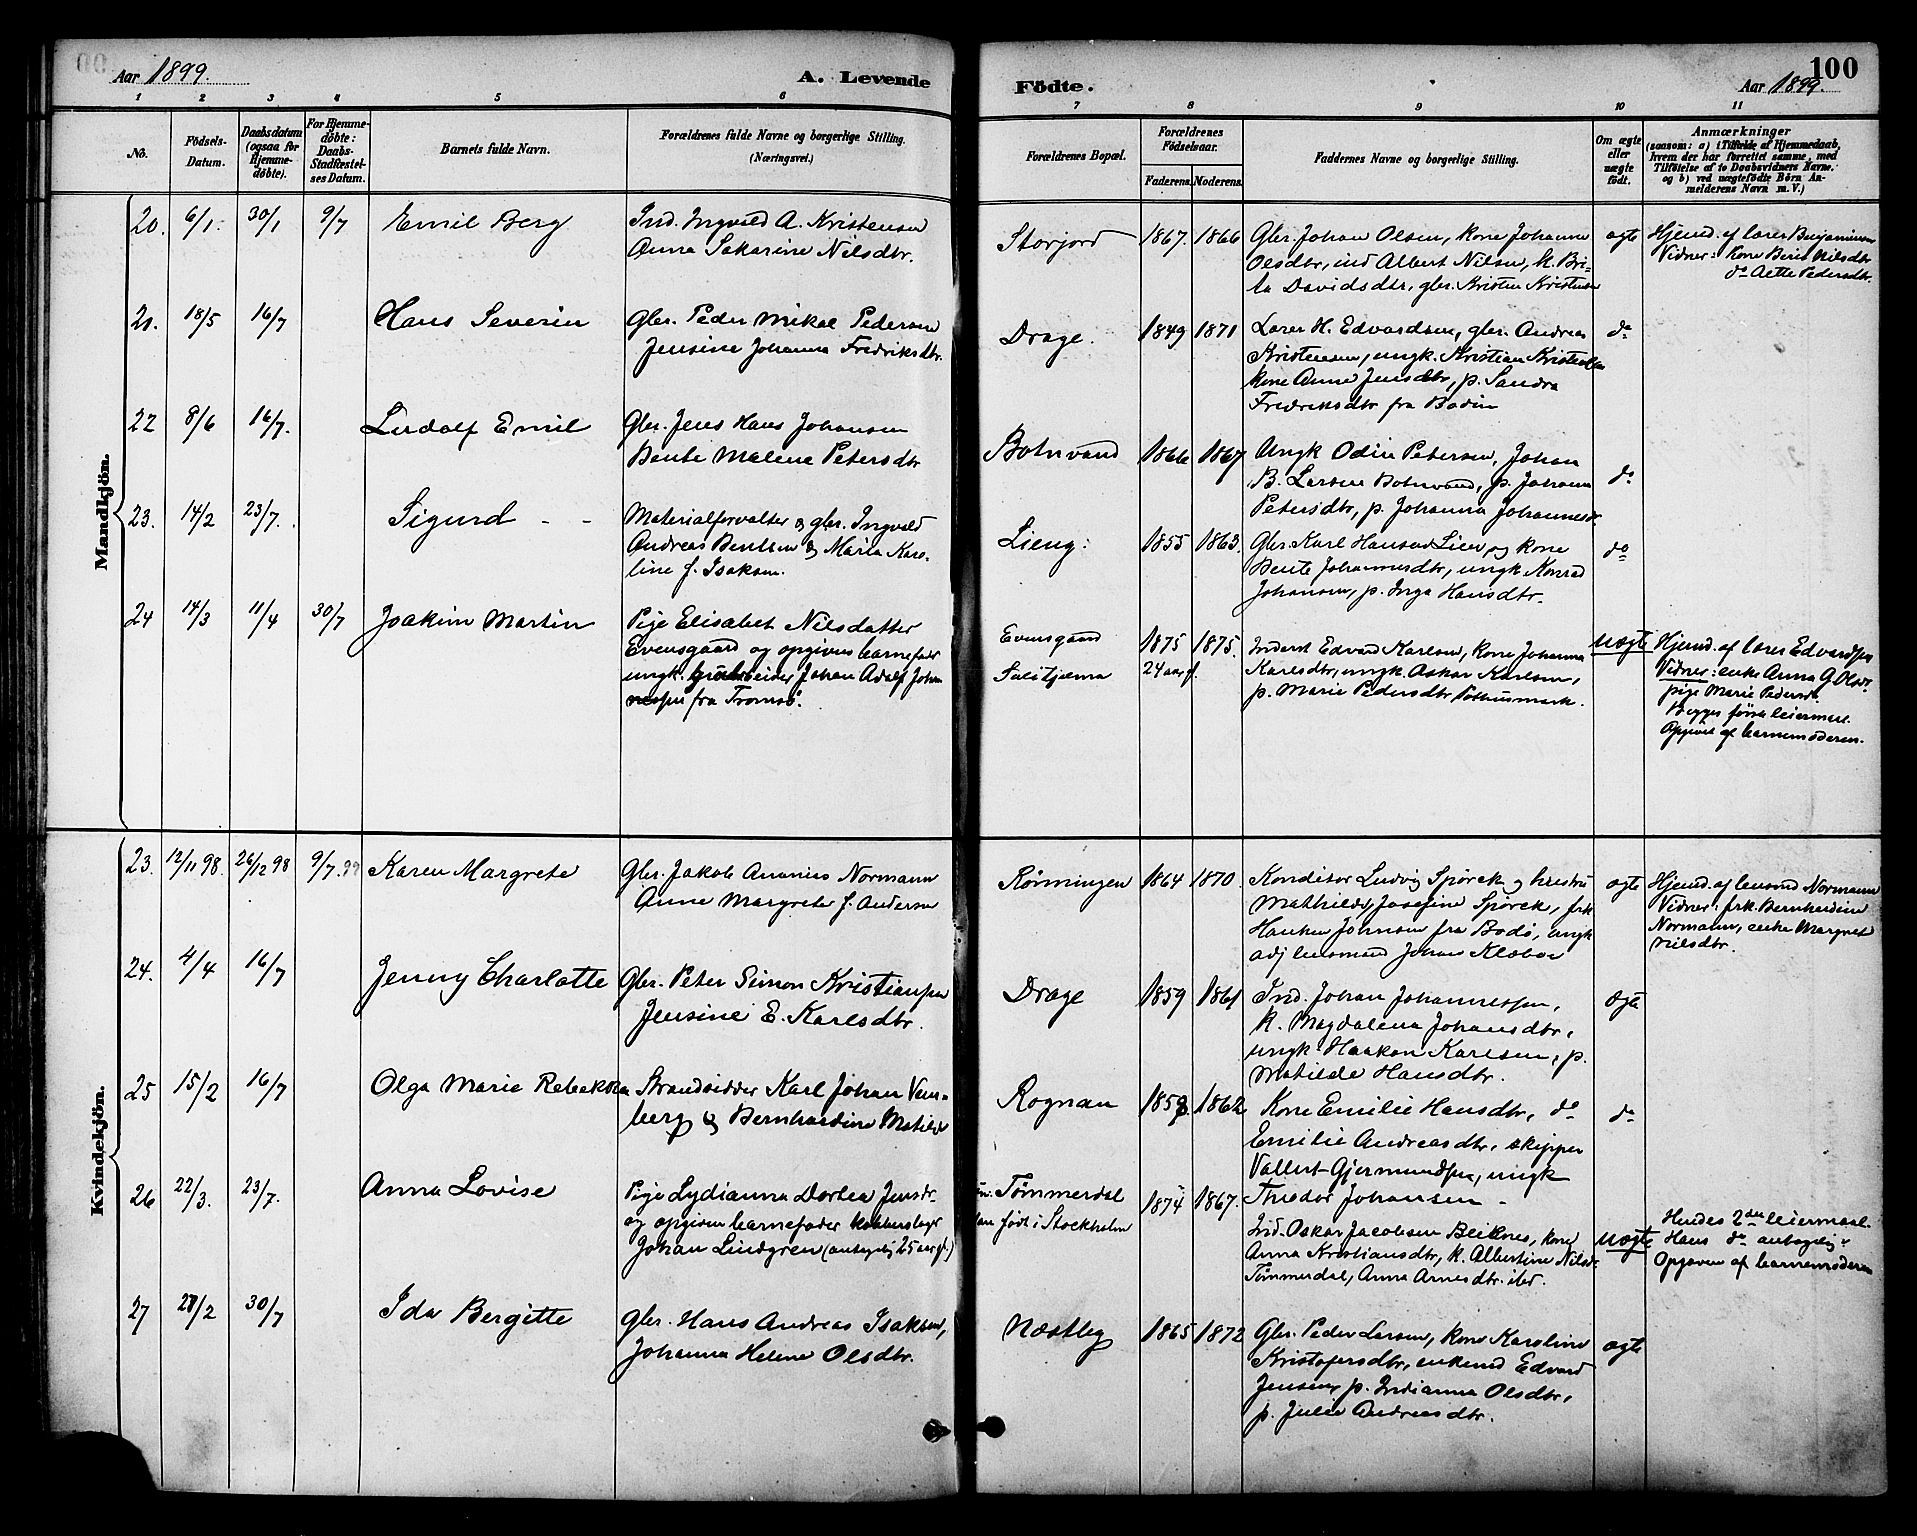 Aar 1899.
A. Levende
Fødte.
100
Aar 1899.
1 2 3 4 5 6 7 8 9 10 11
No.
Fødsels-
Datum.
Daabsdatum
(ogsaa for
Hjemme-
døbte).
For Hjemme-
døbte:
Daabs-
Stadfæstel-
ses Datum.
Barnets fulde Navn.
Forældrenes fulde Navne og borgerlige Stilling.
(Næringsvei.)
Forældrenes Bopæl.
Forældrenes
Fødselsaar.
Faderens. Moderens.
Faddernes Navne og borgerlige Stilling.
Om ægte
eller
uægte
født.
Anmærkninger
(saasom: a) i Tilfælde af Hjemmedaab,
hvem der har forrettet samme, med
Tilføielse af to Daabsvidners Navne.
og b) ved uægtefødte Børn An-
melderens Navn m. V.)
Mandkjön.
20. 6/1. 30/1 9/7 Emil Berg
Ind. Ingvald A. Kristensen
Anna Sakarine Nilsdtr.
Storjord 1867. 1866
Gbr. Johan Olsen, kone Johanna
Olsdtr, ind Albert Nilsen, k. Bri-
ta Davidsdtr, gbr. Kristen Kristensen
ægte
Hjemd. af lærer Benjaminsen
Vidner: Kone Berit Nilsdtr
do Aette Pedersdtr.
21. 18/5 16/7 Hans Severin
Gbr. Peder Mikal Pedersen
Jensine Johanna Fredriksdtr.
Drage. 1849 1871
Lærer H. Edvardsen, gbr. Andreas
Kristensen, ungk. Kristian Kristensen
kone Anne Jensdtr, p. Sandra
Fredriksdtr fra Bodin
do
22 8/6 16/7. Ludolf Emil
Gbr. Jens Hans Johansen
Bente Malene Petersdtr
Botnvand 1866 1867
Ungk Odin Petersen, Johan
B. Larsen Botnvand, p. Johanna
Petersdtr, p. Johanna Johannesdr
do
23. 14/2 23/7. Sigurd - -
Materialforvalter & gbr. Ingvald
Andreas Bentsen & Maria Karo-
line f. Isaksen.
Lieng: 1855 1863.
Gbr. Karl Hansen Lien og kone
Bente Johannesdtr, ungk Konrad
Johansen, p. Inga Hansdtr.
do
24 14/3 11/4 30/7 Joakim Martin
Pige Elisabet Nilsdatter
Evensgaard og opgiven barnefader
ungk. grubearbeider Johan Adolf Johan
nesen fra Tromsø.
Evensgaard 1875 1875.
24 aar g.
Inderst Edvard Karlsen, kone Johanna
Karlsdtr, ungk. Askar Karlsen,
p. Marie Pedersdtr Pothusmark.
uægte
Hjemd. af lærer Edvardsen
Vidner: enke Anna G. Olsdr
pige Marie Pedersdr.
Begges første leiermaal.
Opgivet af barnemoderen.
Kvindekjön.
23. 12/11 98. 26/12 98 9/7. 99 Karen Margrete
Gbr. Jakob Ananias Normann
Anne Margrete f. Andersen
Rønningen 1864 1870.
Konditor Ludvig Spørck og hustru
Mathilde, Josefine Spørck, frk
Hanken Johnsen fra Bodø, ungk
adj lensmand Johan Klæboe
ægte
Hjemd. af lensmd Normann
Vidner: frk. Bernhardine
Normann, enke Margret
Nilsdtr.
24. 4/4 16/7 Jenny Charlotte
Gbr. Peter Simon Kristiansen
Jensine E. Karlsdtr.
Drage 1859 1861
Ind. Johan Johannessen,
k. Magdalena Johansdtr,
ungk. Haakon Karlsen, p.
Matilde Hansdtr.
ægte
25 15/2 16/7 Olga Marie Rebekka
Strandsidder Karl Johan Venn-
berg & Bernhardine Matilde
Rognan 1859 1862
Kone Emilie Hansdtr, do
Emilie Andreasdtr. skipper
Vallert Gjermundsen, ungk
Theodor Johansen -
do
26 22/3. 23/7. Anna Lovise
Pige Lydianna Dortea Jensdr-
og opgiven barnefader kobberslager
Johan Lindgren (antagelig 25 aar gl.)
Tømmerdal
født i Stockholm 1874 1867.
Ind. Oskar Jacobsen Beiknes, kone
Anna Kristiansdtr, k. Albertine Nilsdr
Tømmerdal, Anna Arnesdtr. ibd.
uægte
Hendes 2det leiermaal.
Hans do antagelig
Opgaven af barnemoderen
27 27/2 30/7 Ida Bergitte
Gbr. Hans Andreas Isaksen,
Johanna Helene Olsdtr.
Næstby 1865 1872
Gbr. Peder Larsen, kone Karoline
Kristofersdtr, enkemd Edvard
Jensen, p. Indianna Olsdtr,
p. Julie Andreasdtr.
ægte